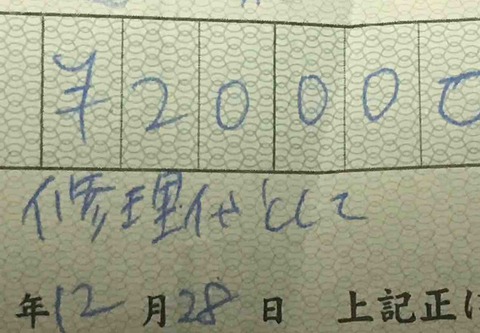 ¥20000
修理代として
年12月28日 上記正に